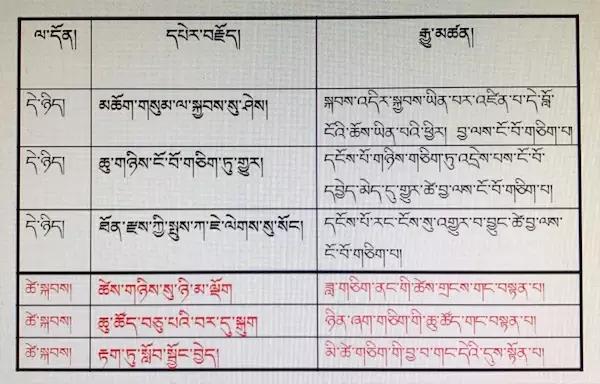 ལ་དོན། དཔེར་བརྗོད། རྒྱུ་མཚན།
དེ་ཉིད། མཆོག་གསུམ་ལ་སྐྱབས་སུ་ཤེས། སྐབས་འདིར་སྐྱབས་ཡིན་པར་འཛིན་པ་དེ་བློ་
ངོའི་ཆོས་ཡིན་པའི་ཕྱིར། བྱ་ལས་ངོ་བོ་གཅིག་པ།
དེ་ཉིད། ཆུ་གཉིས་ངོ་བོ་གཅིག་ཏུ་གྱུར། དངོས་པོ་གཉིས་གཅིག་ཏུ་འདྲེས་པས་ངོ་བོ་
དབྱེད་མེད་དུ་གྱུར་ཚེ་བྱ་ལས་ངོ་བོ་གཅིག་པ།
དེ་ཉིད། ཐོན་རྫས་ཀྱི་སྤུས་ཀ་ཇེ་ལེགས་སུ་སོང་། དངོས་པོ་རང་ངོས་སུ་འགྱུར་བ་བྱུང་ཚེ་བྱ་ལས་
ངོ་བོ་གཅིག་པ།
ཚེ་སྐབས། ཚེས་གཉིས་སུ་ཉི་མ་ལྡོག ཟླ་གཅིག་ནང་གི་ཚེས་གྲངས་གང་བསྟན་པ།
ཚེ་སྐབས། ཆུ་ཚོད་བཅུ་པའི་བར་དུ་སྒུག ཉིན་ཞག་གཅིག་གི་ཆུ་ཚོད་གང་བསྟན་པ།
ཚེ་སྐབས། རྟག་ཏུ་སློབ་སྦྱོང་བྱེད། མི་ཚེ་གཅིག་གི་བྱ་བ་གང་དེའི་དུས་སྟོན་པ།